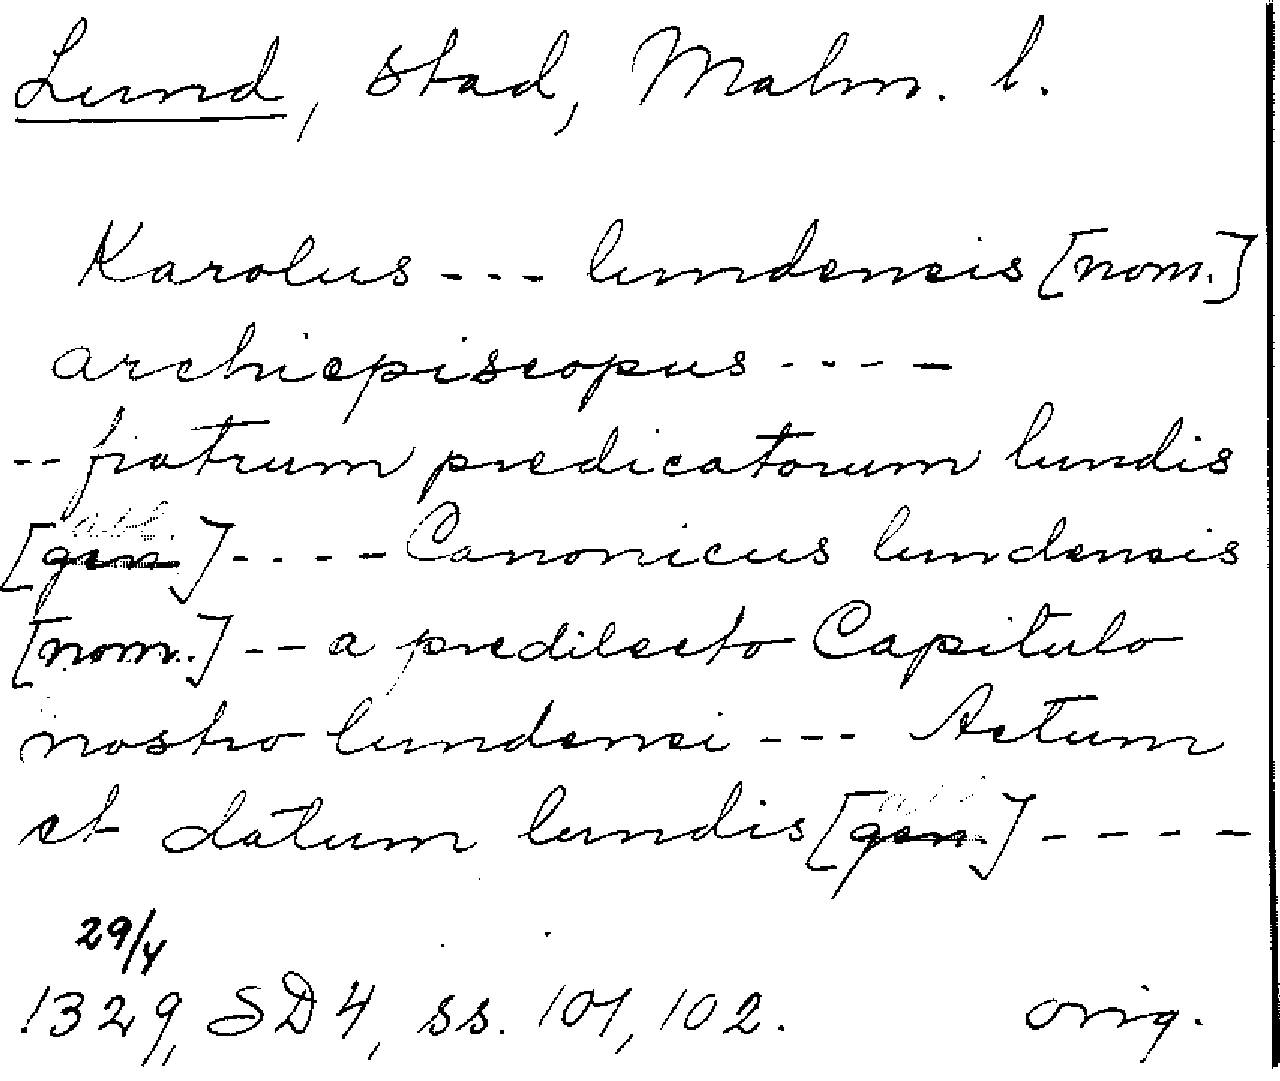 Lund, stad, Malm. l.
Karolus --- lundensis [nom.]
archiepiscopus ----
-- fratrum predicatorum lundis
[gen. abl.] ---- Canonicus lundensis
[nom.] -- a predilecto Capitulo
nostro lundensi --- Actum
et datum lundis [gen. abl.] ----
29/4
1329, SD 4, ss. 101, 102. orig.